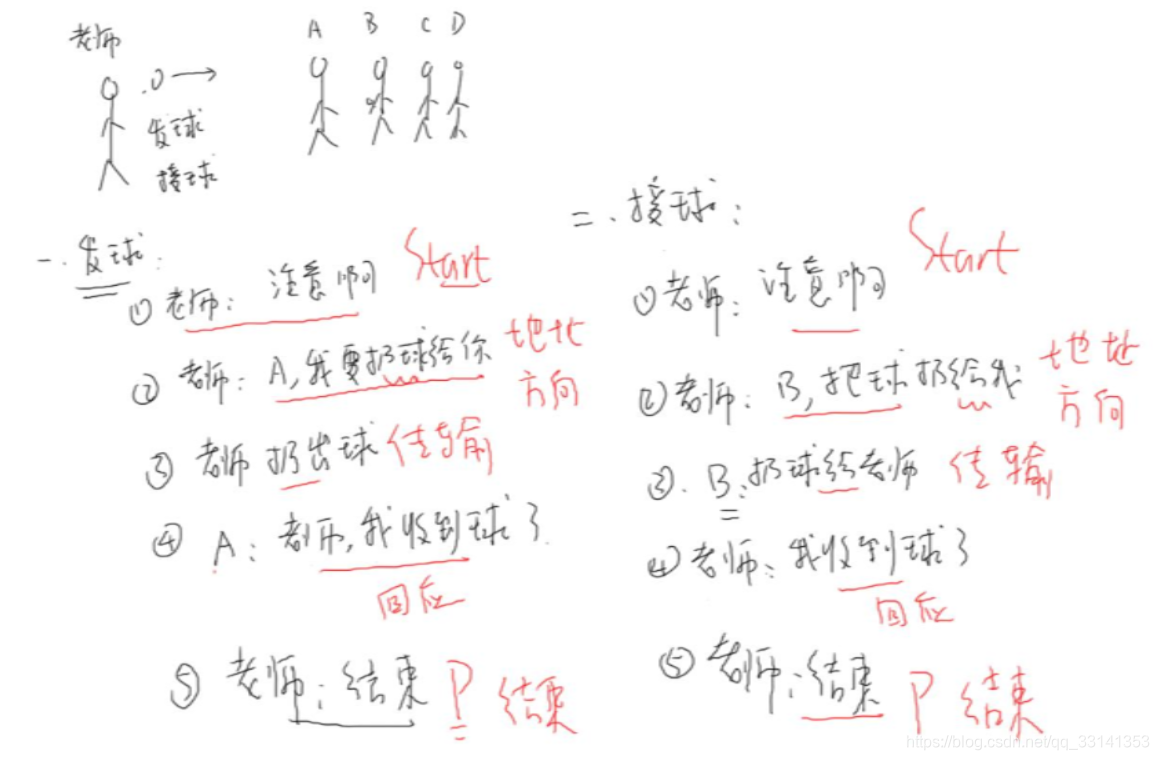 老师
A B C D
发球
接球
一. 发球:
① 老师: 注意啊 Start
② 老师: A, 我要扔球给你 地址
方向
③ 老师 扔出球 传输
④ A: 老师, 我收到球了.
回应
⑤ 老师: 结束 P 结束
二. 接球:
① 老师: 注意啊 Start
② 老师: B, 把球扔给我 地址
方向
③. B: 扔球给老师 传输
④ 老师: 我收到球了
回应
⑤ 老师: 结束 P 结束
https://blog.csdn.net/qq_33141353